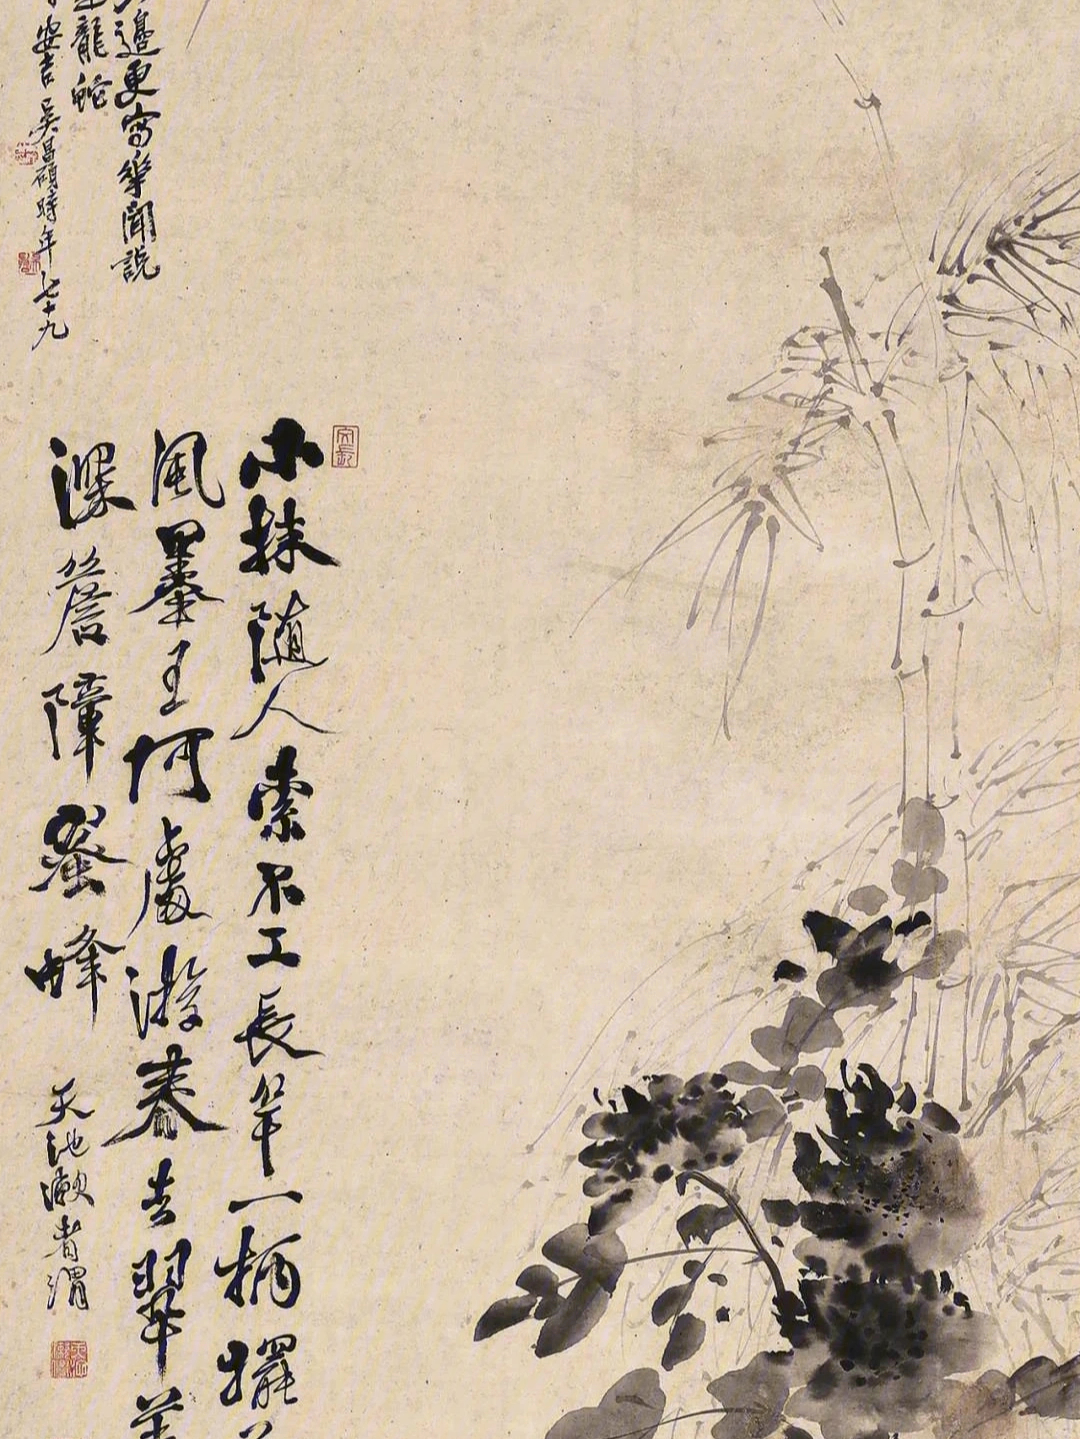 邊更寫華聞説
龍蛇
安吉吳昌碩時年七十九
文長
小抹随人索不工長竿一柄擺
風墨王何處游春去翠
深簷障蜜蜂
天池漱者渭